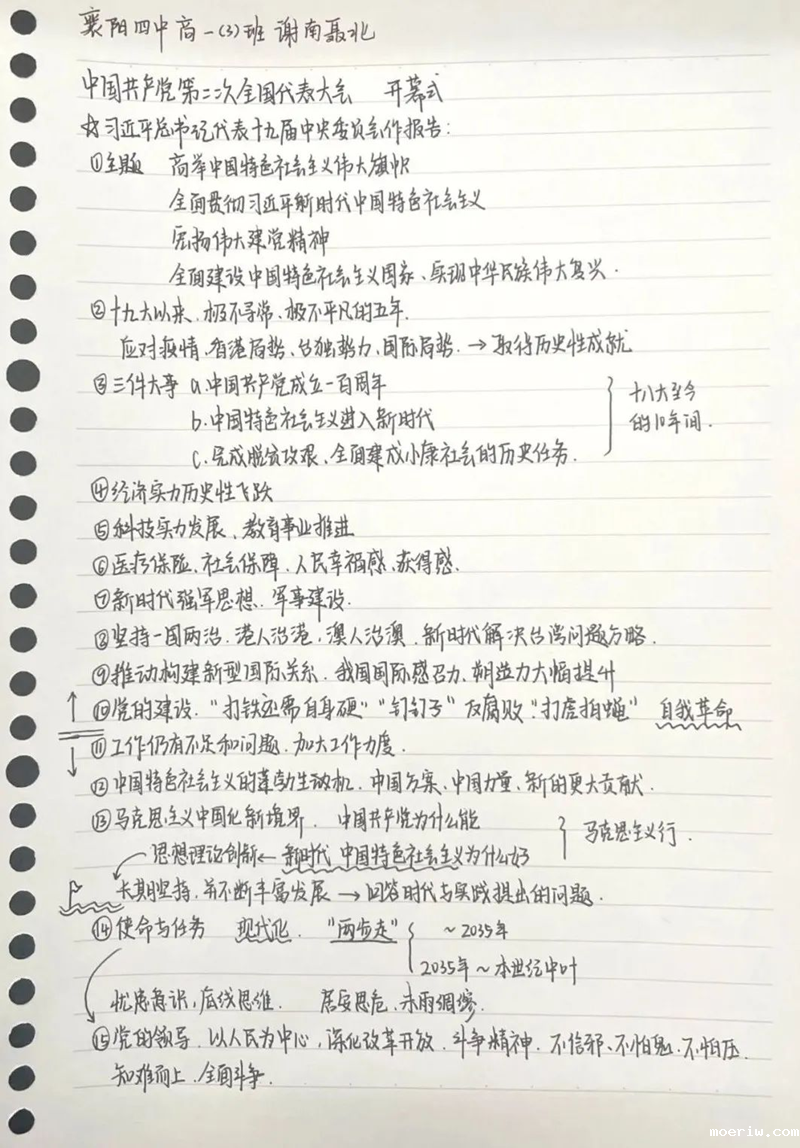 襄阳四中高一(3)班 谢南聂北
中国共产党第二次全国代表大会 开幕式
☆习近平总书记代表十九届中央委员会作报告:
①主题 高举中国特色社会主义伟大旗帜
全面贯彻习近平新时代中国特色社会主义
弘扬伟大建党精神
全面建设中国特色社会主义国家、实现中华民族伟大复兴.
②十九大以来、极不寻常、极不平凡的五年.
应对疫情、香港局势、台独势力、国际局势. → 取得历史性成就
③三件大事 a.中国共产党成立一百周年
b.中国特色社会主义进入新时代
c.完成脱贫攻艰、全面建成小康社会的历史任务.
十八大至今
的10年间.
④经济实力历史性飞跃
⑤科技实力发展、教育事业推进
⑥医疗保险、社会保障、人民幸福感、获得感.
⑦新时代强军思想、军事建设.
⑧坚持一国两治、港人治港,澳人治澳、新时代解决台湾问题方略.
⑨推动构建新型国际关系、我国国际感召力、塑造力大幅提升
⑩党的建设."打铁还需自身硬""钉钉子"反腐败"打虎拍蝇" 自我革命
⑪工作仍有不足和问题、加大工作力度.
⑫中国特色社会主义的蓬勃生机、中国方案、中国力量、新的更大贡献.
⑬马克思主义中国化新境界. 中国共产党为什么能
马克思主义行.
思想理论创新← 新时代 中国特色社会主义为什么好
长期坚持,并不断丰富发展 → 回答时代与实践提出的问题.
⑭使命与任务 现代化. "两步走" ~2035年
2035年~本世纪中叶
忧患意识,底线思维. 居安思危、未雨绸缪.
⑮党的领导. 以人民为中心,深化改革开放. 斗争精神. 不信邪、不怕鬼、不怕压.
知难而上、全面斗争.
moeriw.com